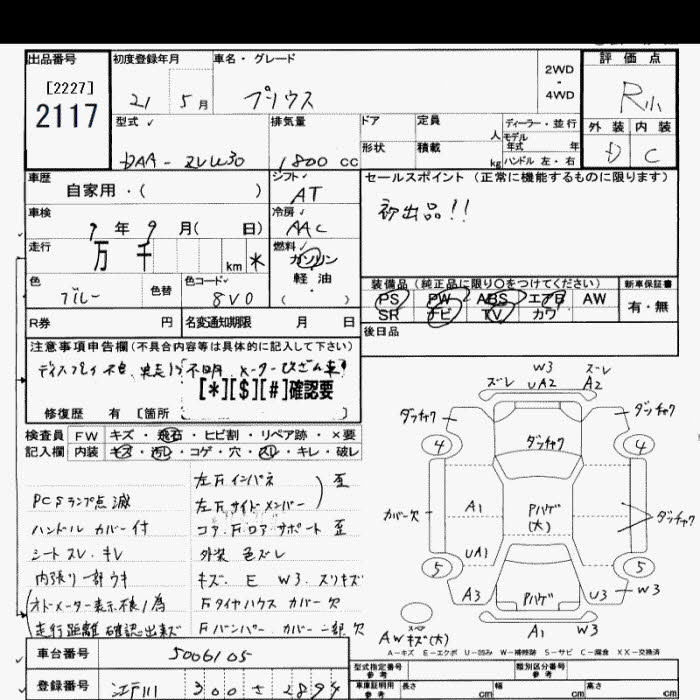 出品番号
[2227]
2117
初度登録年月
21 5月
車名・グレード
プリウス
2WD
-
4WD
評価点
R小
外装 内装
D C
型式
DAA-ZVW30
排気量
1800 cc
ドア
定員 人
形状
積載 kg
ディーラー・並行
モデル
年式 年
ハンドル 左・右
車歴
自家用・( )
シフト
AT
セールスポイント (正常に機能するものに限ります)
初出品!!
車検
7年9月( 日)
冷房
AAC
走行
万 千 km *
燃料
ガソリン
軽・油
( )
色
ブルー
色替
色コード
8V0
装備品(純正品に限り〇をつけてください)
PS PW ABS エアB AW
SR ナビ TV カワ
新車保証書
有・無
R券 円
名変通知期限 月 日
後日品
注意事項申告欄(不具合内容等は具体的に記入して下さい)
[*][$][#]確認要
修復歴 有 [箇所 ]
検査員
記入欄
FW キズ・飛石・ヒビ割・リペア跡・×要
内装 キズ・汚レ・コゲ・穴・スレ・キレ・破レ
左Fインパネ
左Fサイドメンバー 歪
PCSランプ点滅
コア.Fロアサポート 歪
ハンドルカバー付
外装 色ズレ
シートスレ.キレ
キズ. E W3. スリキズ
内張り一部ウキ
Fタイヤハウスカバー欠
オドメーター表示不良の為
走行距離確認出来ず
Fバンパーカバー一部欠
W3
ズレ UA2
ズレ
A2
ダッチャク
ダッチャク
4
ダッチャク
4
カバー欠
A1
Pハゲ
(大)
ダッチャク
UA1
5
5
A3
Pハゲ
U3
W3
スペア
AWキズ(大)
A1
W3
A-キズ E-エクボ U-凹み W-補修跡 S-サビ C-腐食 XX-交換済
車台番号
5006105
登録番号
江戸川 300 さ 2894
型式指定番号
参考
類別区分番号
参考
車庫証明用
参考
長さ cm
幅 cm
高さ cm